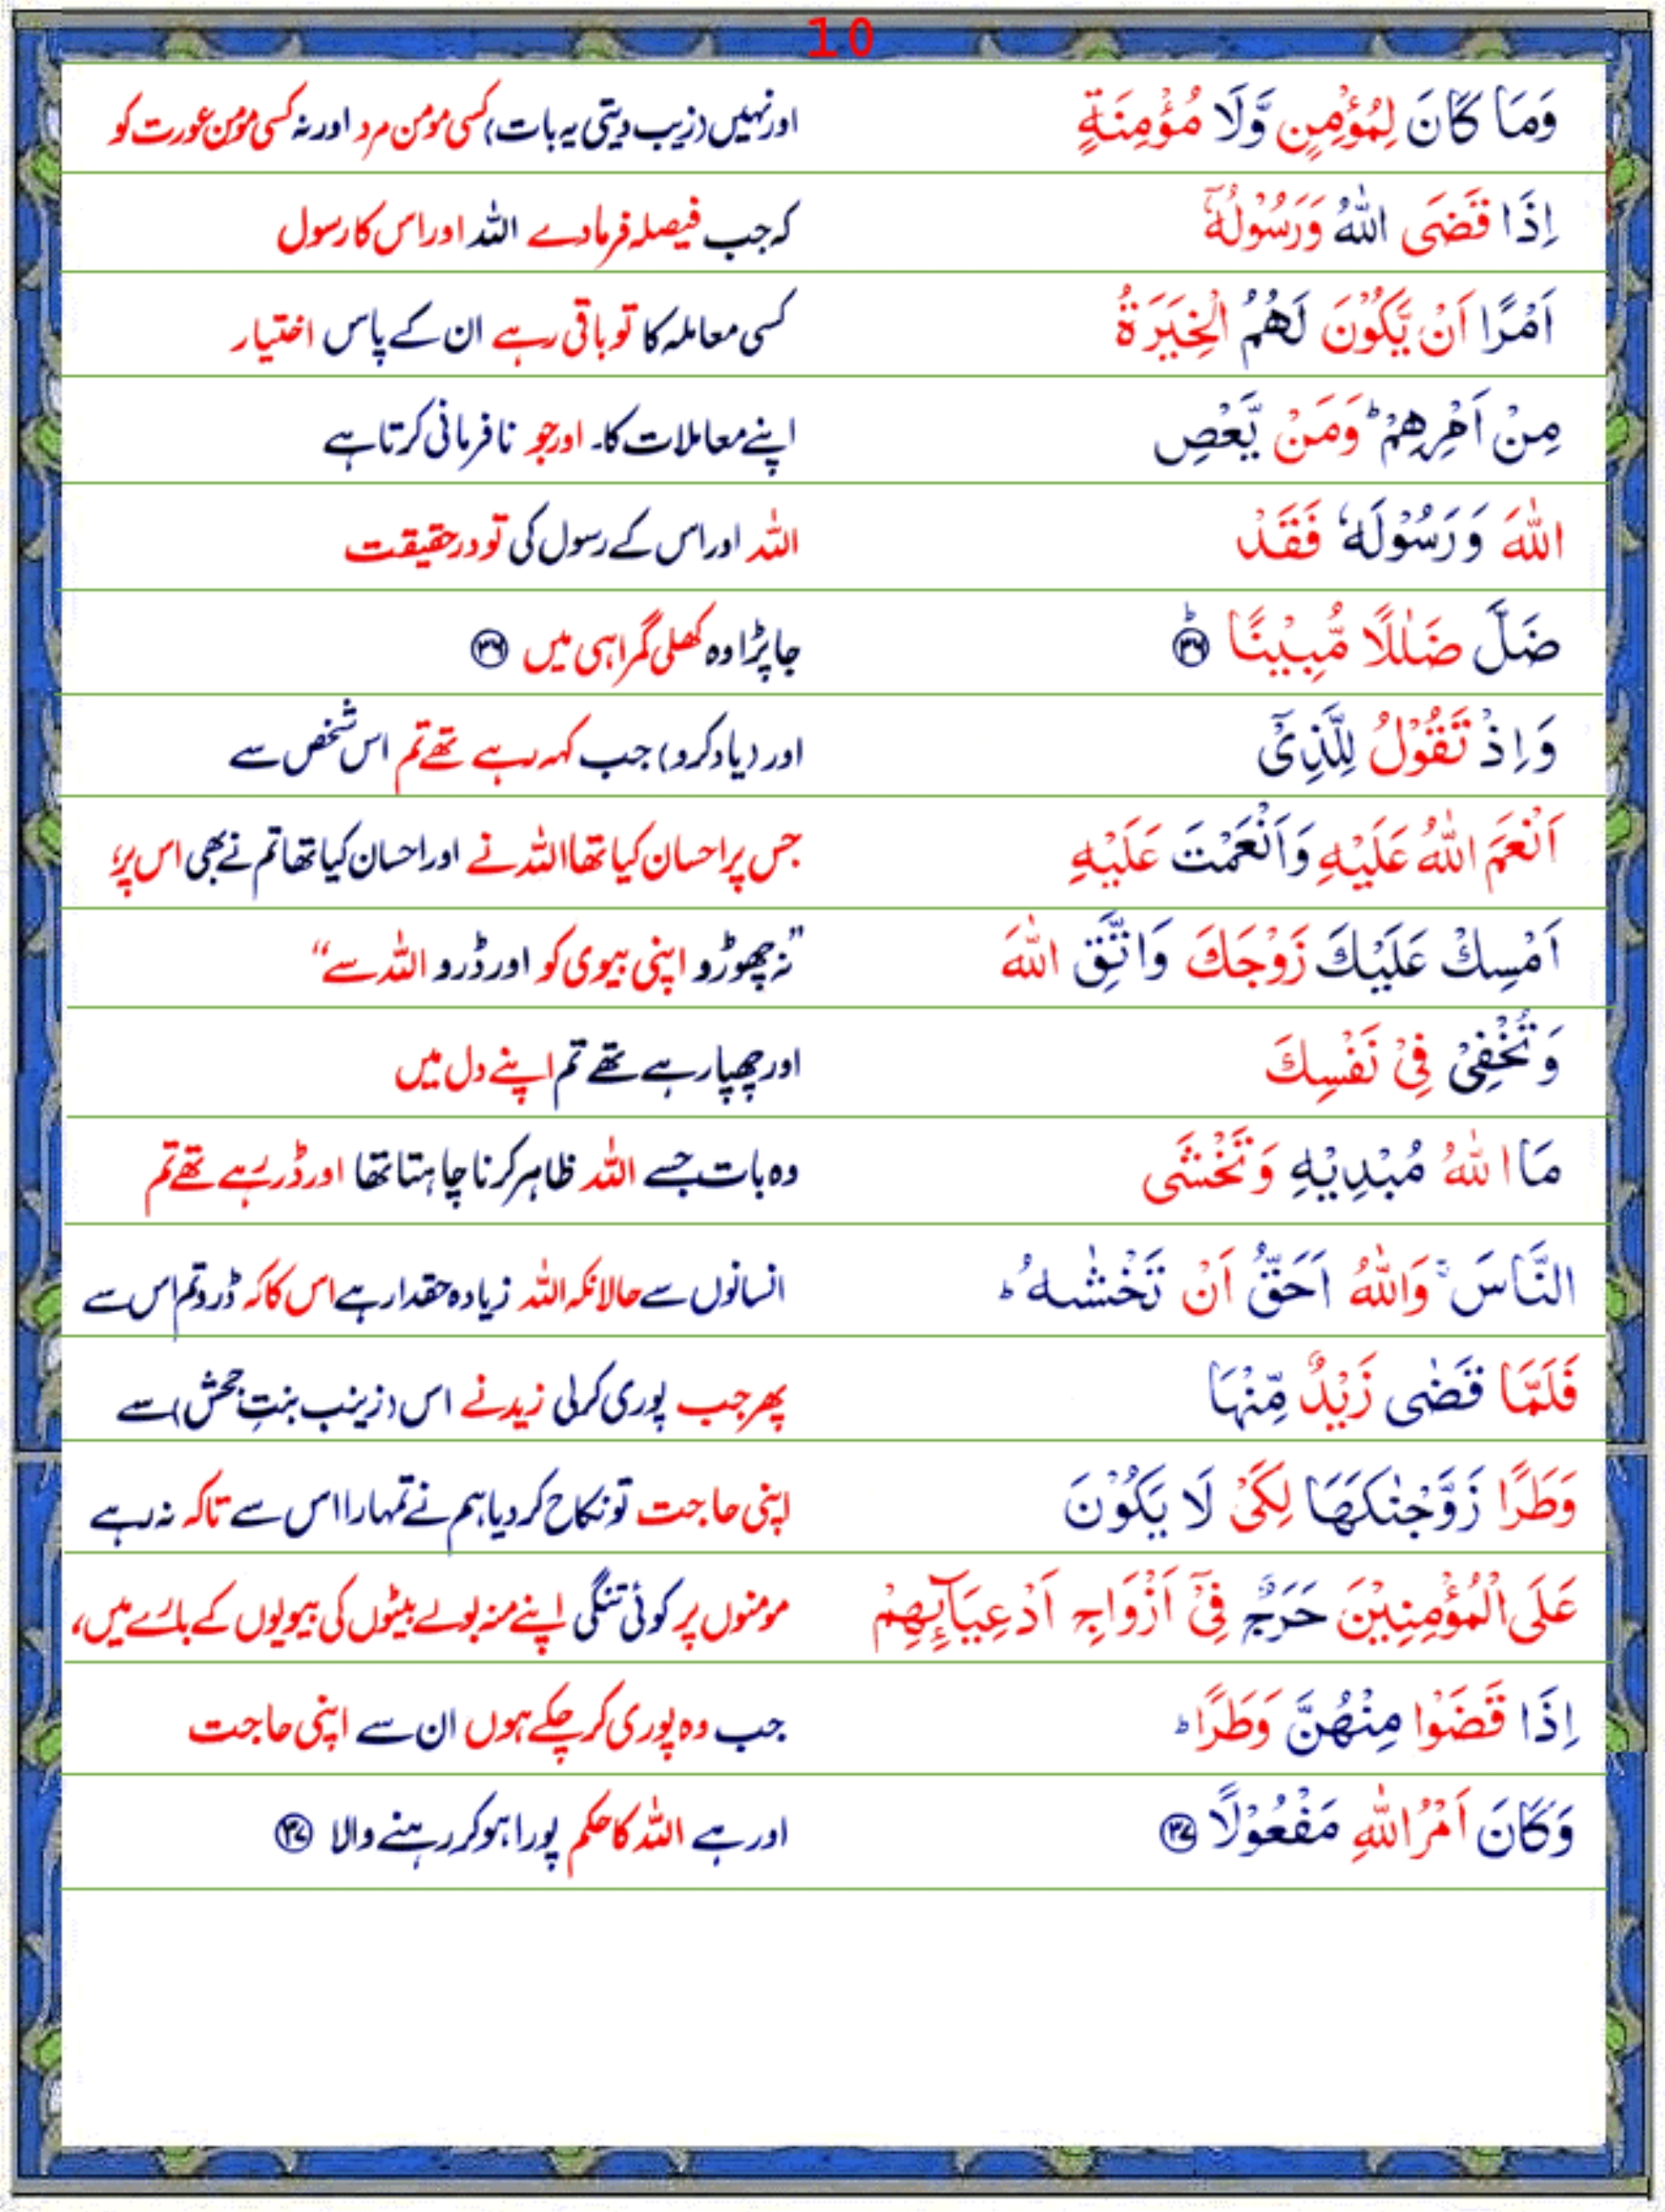 10
وَمَا كَانَ لِمُؤْمِنٍ وَّلَا مُؤْمِنَةٍ اور نہیں (زیب دیتی یہ بات) کسی مومن مرد اور نہ کسی مومن عورت کو
اِذَا قَضَى اللّٰهُ وَرَسُوْلُهٗٓ کہ جب فیصلہ فرمادے اللہ اور اس کا رسول
اَمْرًا اَنْ يَّكُوْنَ لَهُمُ الْخِيَرَةُ کسی معاملہ کا تو باقی رہے ان کے پاس اختیار
مِنْ اَمْرِهِمْ ؕ وَمَنْ يَّعْصِ اپنے معاملات کا۔ اور جو نافرمانی کرتا ہے
اللّٰهَ وَرَسُوْلَهٗ فَقَدْ اللہ اور اس کے رسول کی تو درحقیقت
ضَلَّ ضَلٰلًا مُّبِيْنًا ؕ ﴿۳۶﴾ جا پڑا وہ کھلی گمراہی میں ﴿۳۶﴾
وَاِذْ تَقُوْلُ لِلَّذِىْٓ اور (یاد کرو) جب کہہ رہے تھے تم اس شخص سے
اَنْعَمَ اللّٰهُ عَلَيْهِ وَاَنْعَمْتَ عَلَيْهِ جس پر احسان کیا تھا اللہ نے اور احسان کیا تھا تم نے بھی اس پر،
اَمْسِكْ عَلَيْكَ زَوْجَكَ وَاتَّقِ اللّٰهَ ”نہ چھوڑو اپنی بیوی کو اور ڈرو اللہ سے“
وَتُخْفِىْ فِىْ نَفْسِكَ اور چھپا رہے تھے تم اپنے دل میں
مَا اللّٰهُ مُبْدِيْهِ وَتَخْشَى وہ بات جسے اللہ ظاہر کرنا چاہتا تھا اور ڈر رہے تھے تم
النَّاسَ ۚ وَاللّٰهُ اَحَقُّ اَنْ تَخْشٰىهُ ؕ انسانوں سے حالانکہ اللہ زیادہ حقدار ہے اس کا کہ ڈرو تم اس سے
فَلَمَّا قَضٰى زَيْدٌ مِّنْهَا پھر جب پوری کرلی زید نے اس (زینب بنتِ جحش) سے
وَطَرًا زَوَّجْنٰكَهَا لِكَىْ لَا يَكُوْنَ اپنی حاجت تو نکاح کر دیا ہم نے تمہارا اس سے تاکہ نہ رہے
عَلَى الْمُؤْمِنِيْنَ حَرَجٌ فِىْٓ اَزْوَاجِ اَدْعِيَآئِهِمْ مومنوں پر کوئی تنگی اپنے منہ بولے بیٹوں کی بیویوں کے بارے میں،
اِذَا قَضَوْا مِنْهُنَّ وَطَرًا ؕ جب وہ پوری کر چکے ہوں ان سے اپنی حاجت
وَكَانَ اَمْرُ اللّٰهِ مَفْعُوْلًا ﴿۳۷﴾ اور ہے اللہ کا حکم پورا ہو کر رہنے والا ﴿۳۷﴾